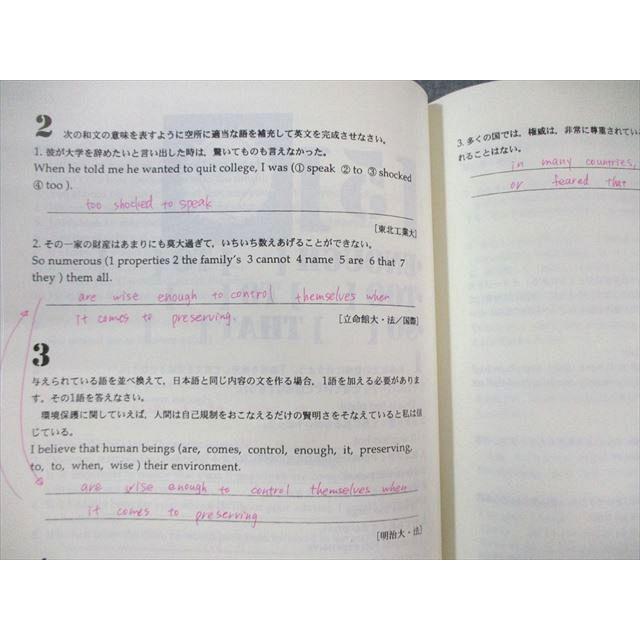 2 次の和文の意味を表すように空所に適当な語を補充して英文を完成させなさい。
1. 彼が大学を辞めたいと言い出した時は，驚いてものも言えなかった。
When he told me he wanted to quit college, I was (① speak ② to ③ shocked
④ too ).
too shocked to speak
[東北工業大]
2. その一家の財産はあまりにも莫大過ぎて，いちいち数えあげることができない。
So numerous (1 properties 2 the family's 3 cannot 4 name 5 are 6 that 7
they ) them all.
are wise enough to control themselves when
it comes to preserving.
[立命館大・法／国際]
3
与えられている語を並べ換えて，日本語と同じ内容の文を作る場合，1語を加える必要がありま
す。その1語を答えなさい。
環境保護に関していえば，人間は自己規制をおこなえるだけの賢明さをそなえていると私は信
じている。
I believe that human beings (are, comes, control, enough, it, preserving,
to, to, when, wise ) their environment.
are wise enough to control themselves when
it comes to preserving
[明治大・法]
3. 多くの国では，権威は，非常に尊重されてい
れることはない。
in many countries,
or feared that